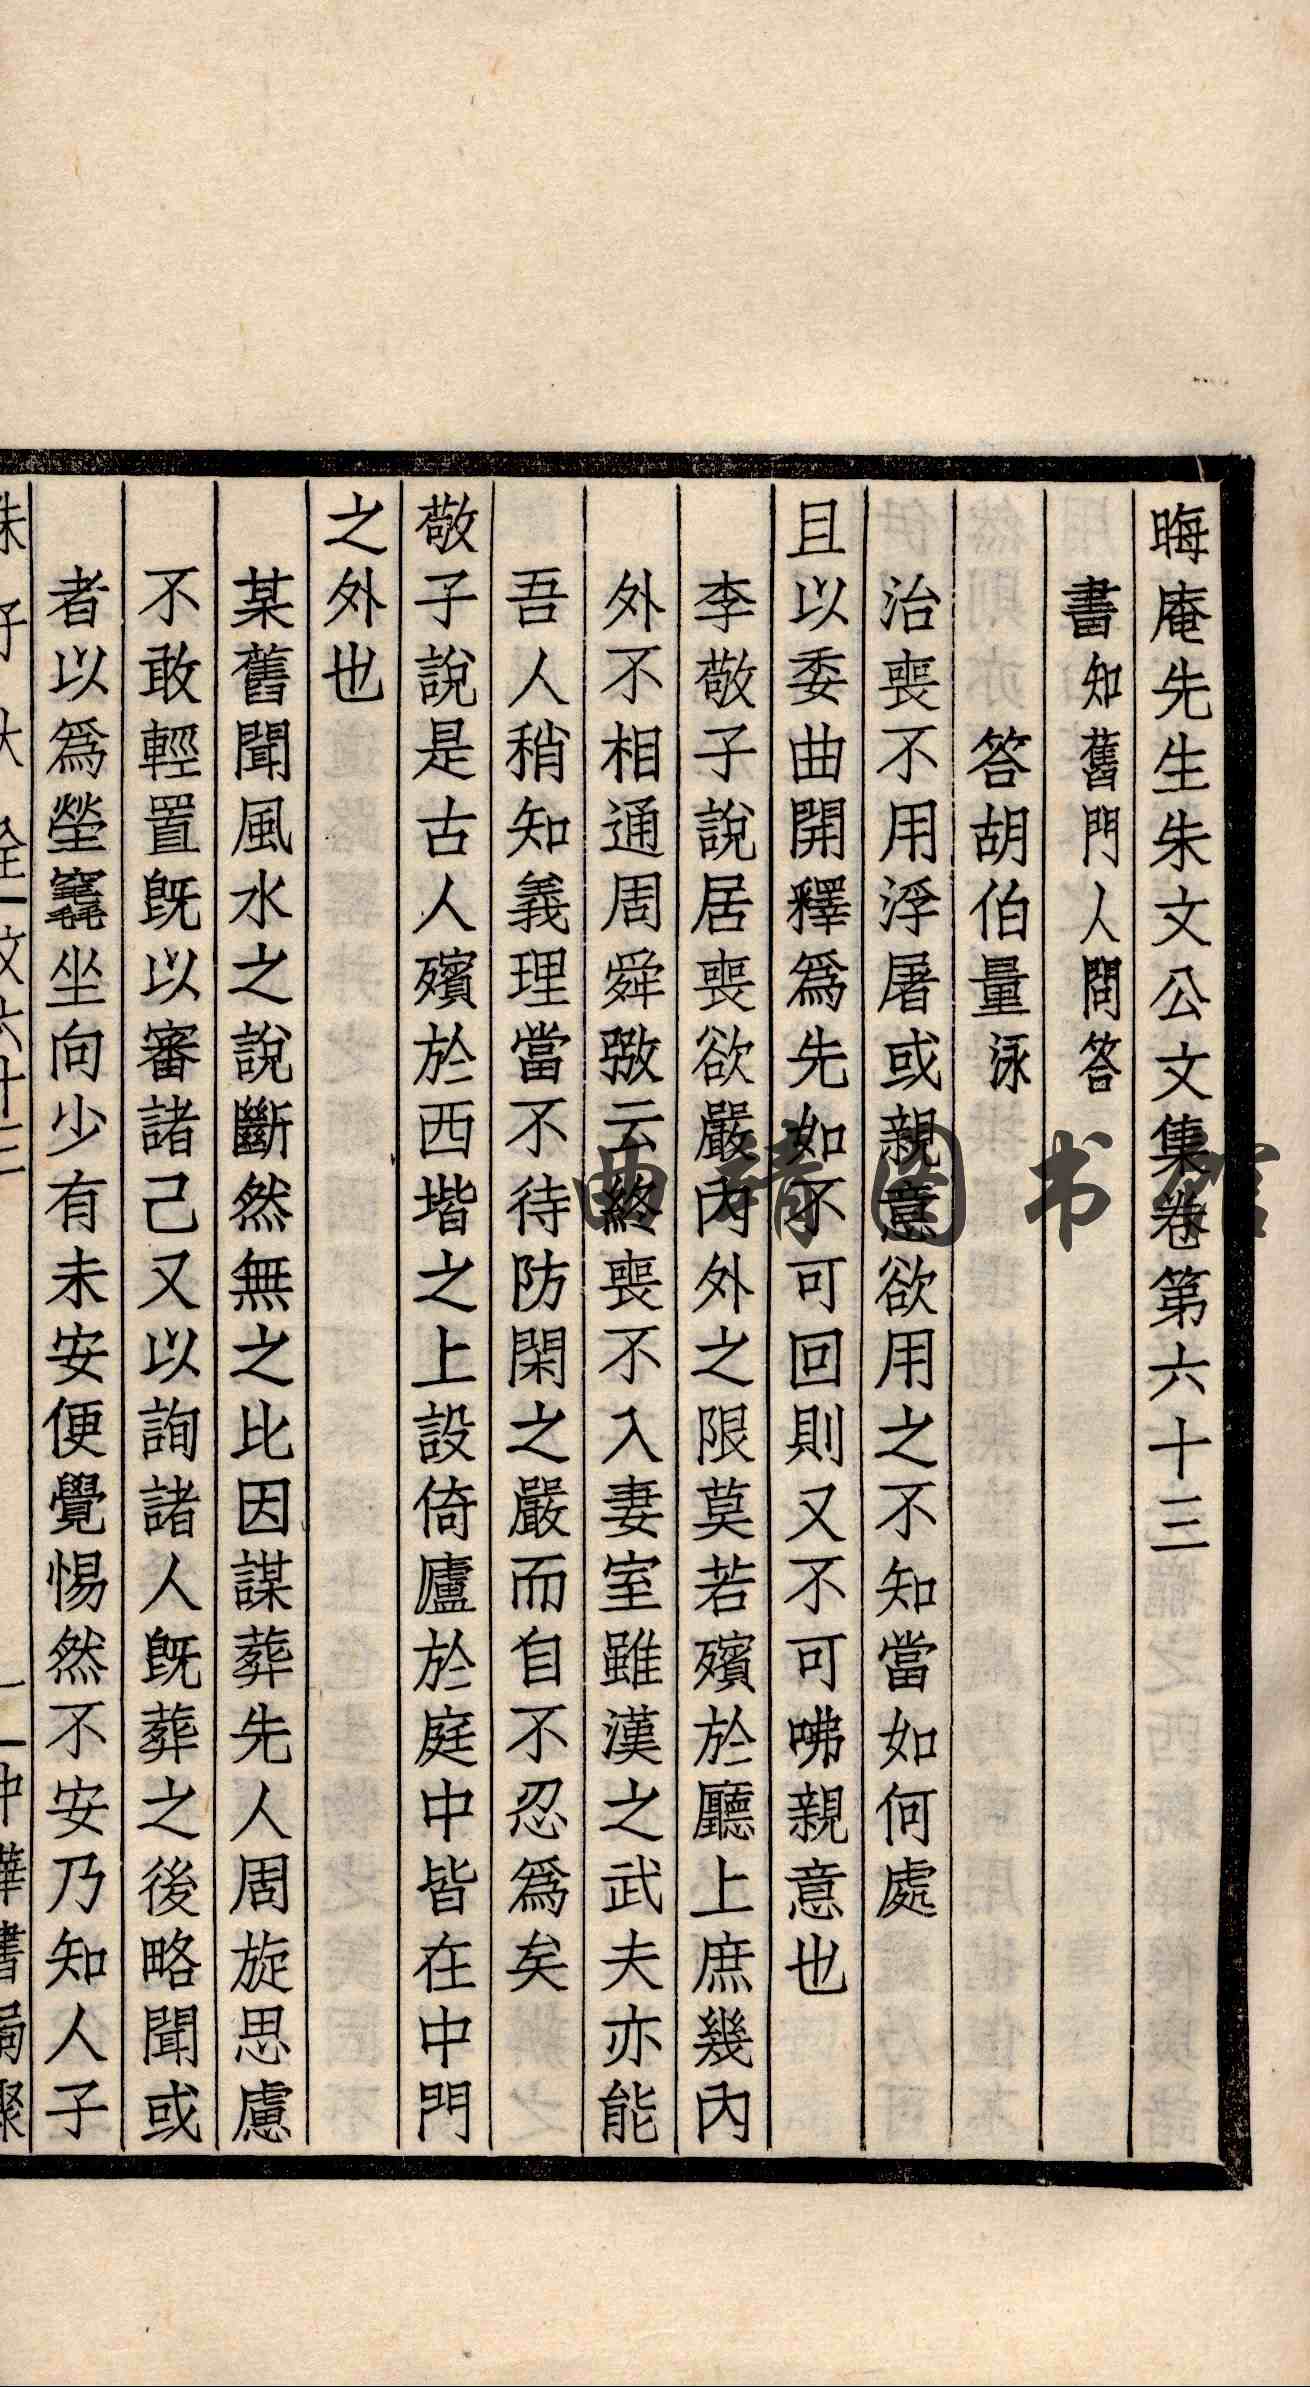 晦庵先生朱文公文集卷第六十三
書知舊門人問答
答胡伯量泳
治喪不用浮屠或親意欲用之不知當如何處
且以委曲開釋爲先如不可回則又不可咈親意也
李敬子說居喪欲嚴內外之限莫若殯於廳上庶幾內
外不相通周舜弼云終喪不入妻室雖漢之武夫亦能
吾人稍知義理當不待防閑之嚴而自不忍爲矣
敬子說是古人殯於西堦之上設倚廬於庭中皆在中門
之外也
某舊聞風水之說斷然無之比因謀葬先人周旋思慮
不敢輕置既以審諸己又以詢諸人既葬之後略聞或
者以爲塋竁坐向少有未安便覺惕然不安乃知人子
朱子大全 文六十三 一 中華書局聚
曲靖图书馆